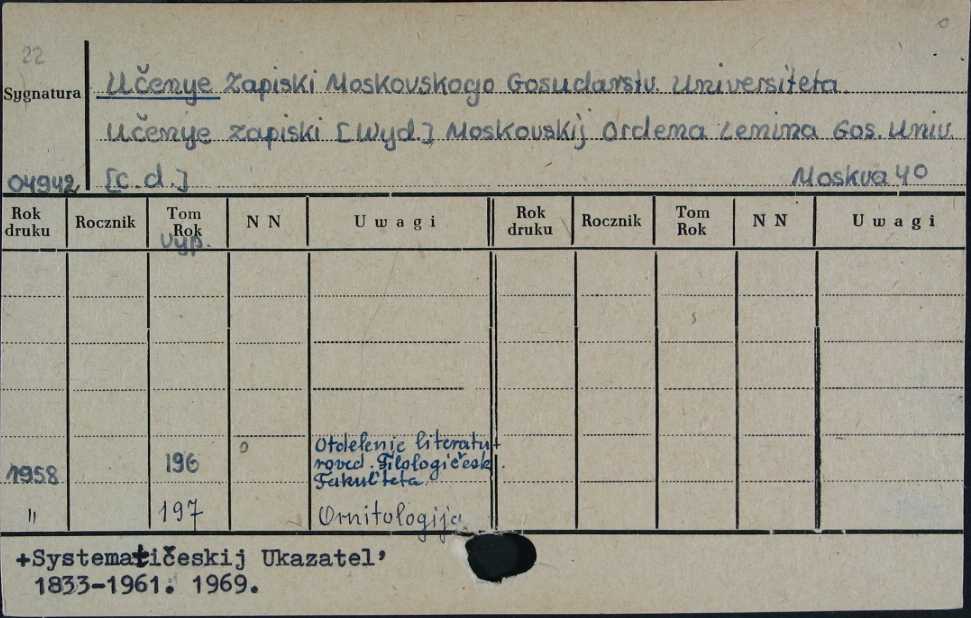 22
Sygnatura
Učenye Zapiski Moskovskogo Gosudarstv. Universiteta.
Učenye Zapiski [Wyd.] Moskovskij Ordena Lenina Gos. Univ.
04942 [c.d.] Moskva 40
Rok druku Rocznik Tom Rok N N Uwagi Rok druku Rocznik Tom Rok N N Uwagi
Vyp.
Otdelenie literatu-
1958 196 0 roved. Filologičesk.
Fakul'teta
" 197 Ornitologija
+Systematičeskij Ukazatel'
1833-1961. 1969.